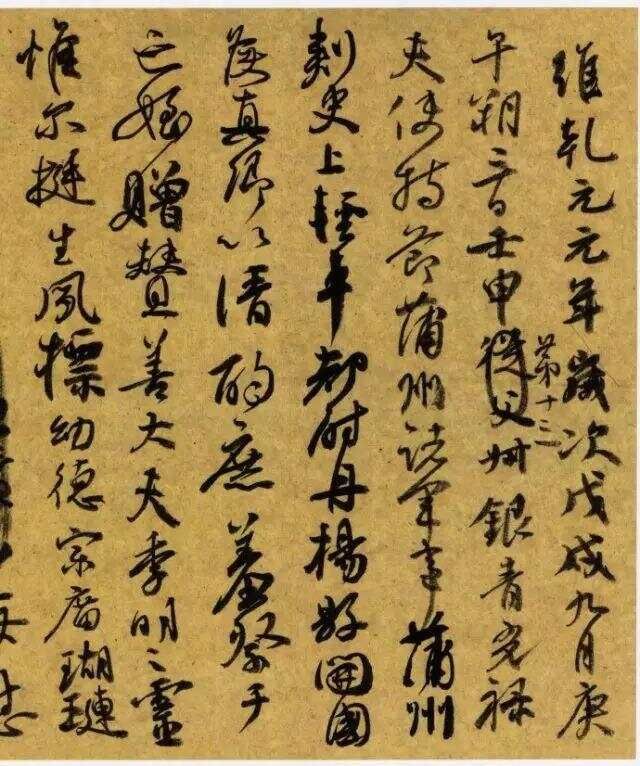 維乾元元年歲次戊戌九月庚
午朔三日壬申第十三叔銀青光祿
夫使持節蒲州諸軍事蒲州
刺史上輕車都尉丹楊縣開國
侯真卿以清酌庶羞祭于
亡姪贈贊善大夫季明之靈
惟尔挺生夙標幼德宗廟瑚璉
每慰